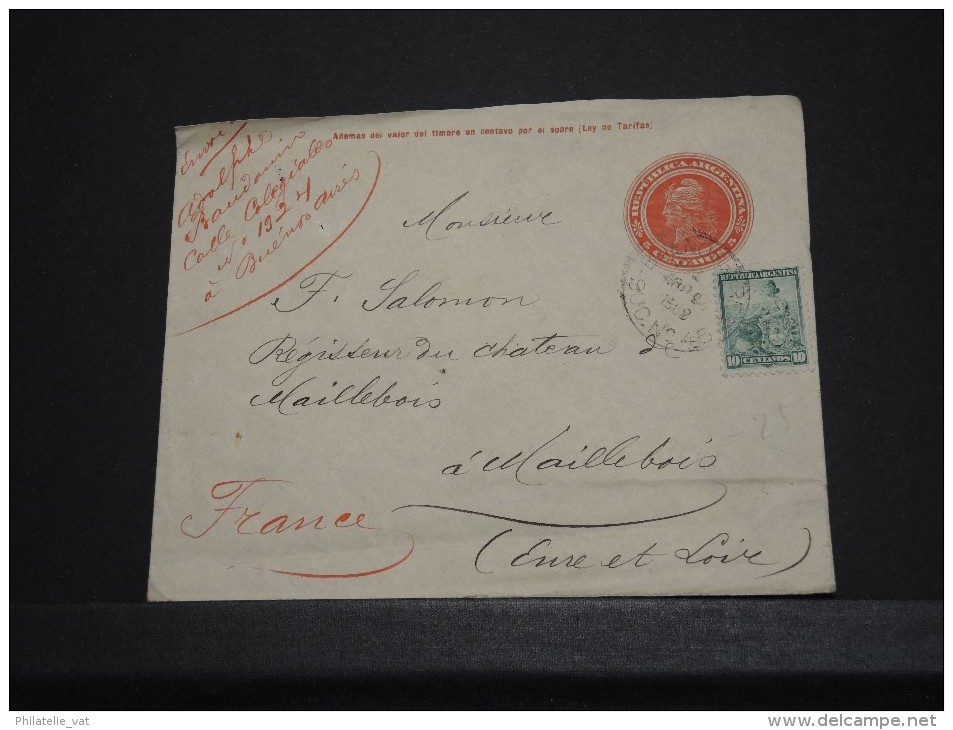 Ademas del valor del timbre un centavo por el sobre (Ley de Tarifas)
Envoi
Adolphe
Baudouin
Calle Colegiales
No 1924
à Buénos Aires
REPUBLICA ARGENTINA
5 CENTAVOS 5
Monsieur
F. Salomon
Régisseur du château de
Maillebois
à Maillebois
France
(Eure et Loir)
SUC. No. 46
REPUBLICA ARGENTINA
10 CENTAVOS 10
25
Philatelie_vat
delcampe.net